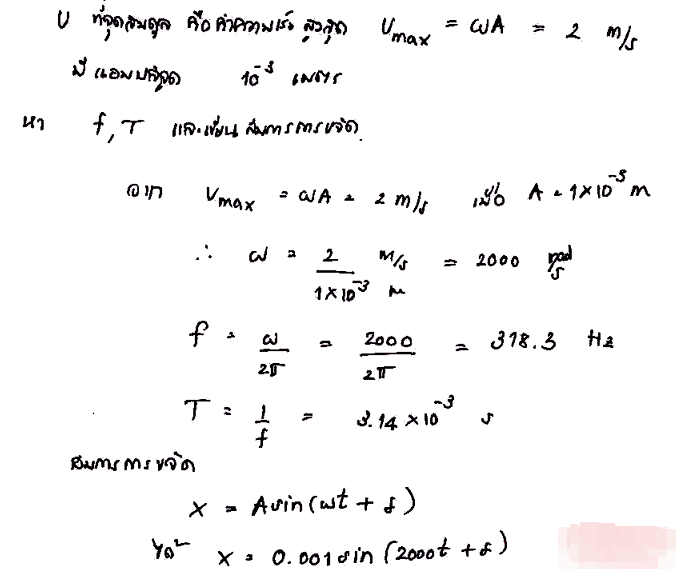 υ ที่จุดสมดุล คือค่าความเร็วสูงสุด υmax = ωA = 2 m/s
มีแอมปลิจูด 10⁻³ เมตร
หา f, T และเขียนสมการการขจัด
จาก υmax = ωA = 2 m/s เมื่อ A = 1×10⁻³ m
∴ ω = 2 m/s / 1×10⁻³ m = 2000 rad/s
f = ω/2π = 2000/2π = 318.3 Hz
T = 1/f = 3.14×10⁻³ s
สมการการขจัด
x = A sin(ωt + δ)
x = 0.001 sin(2000t + δ)